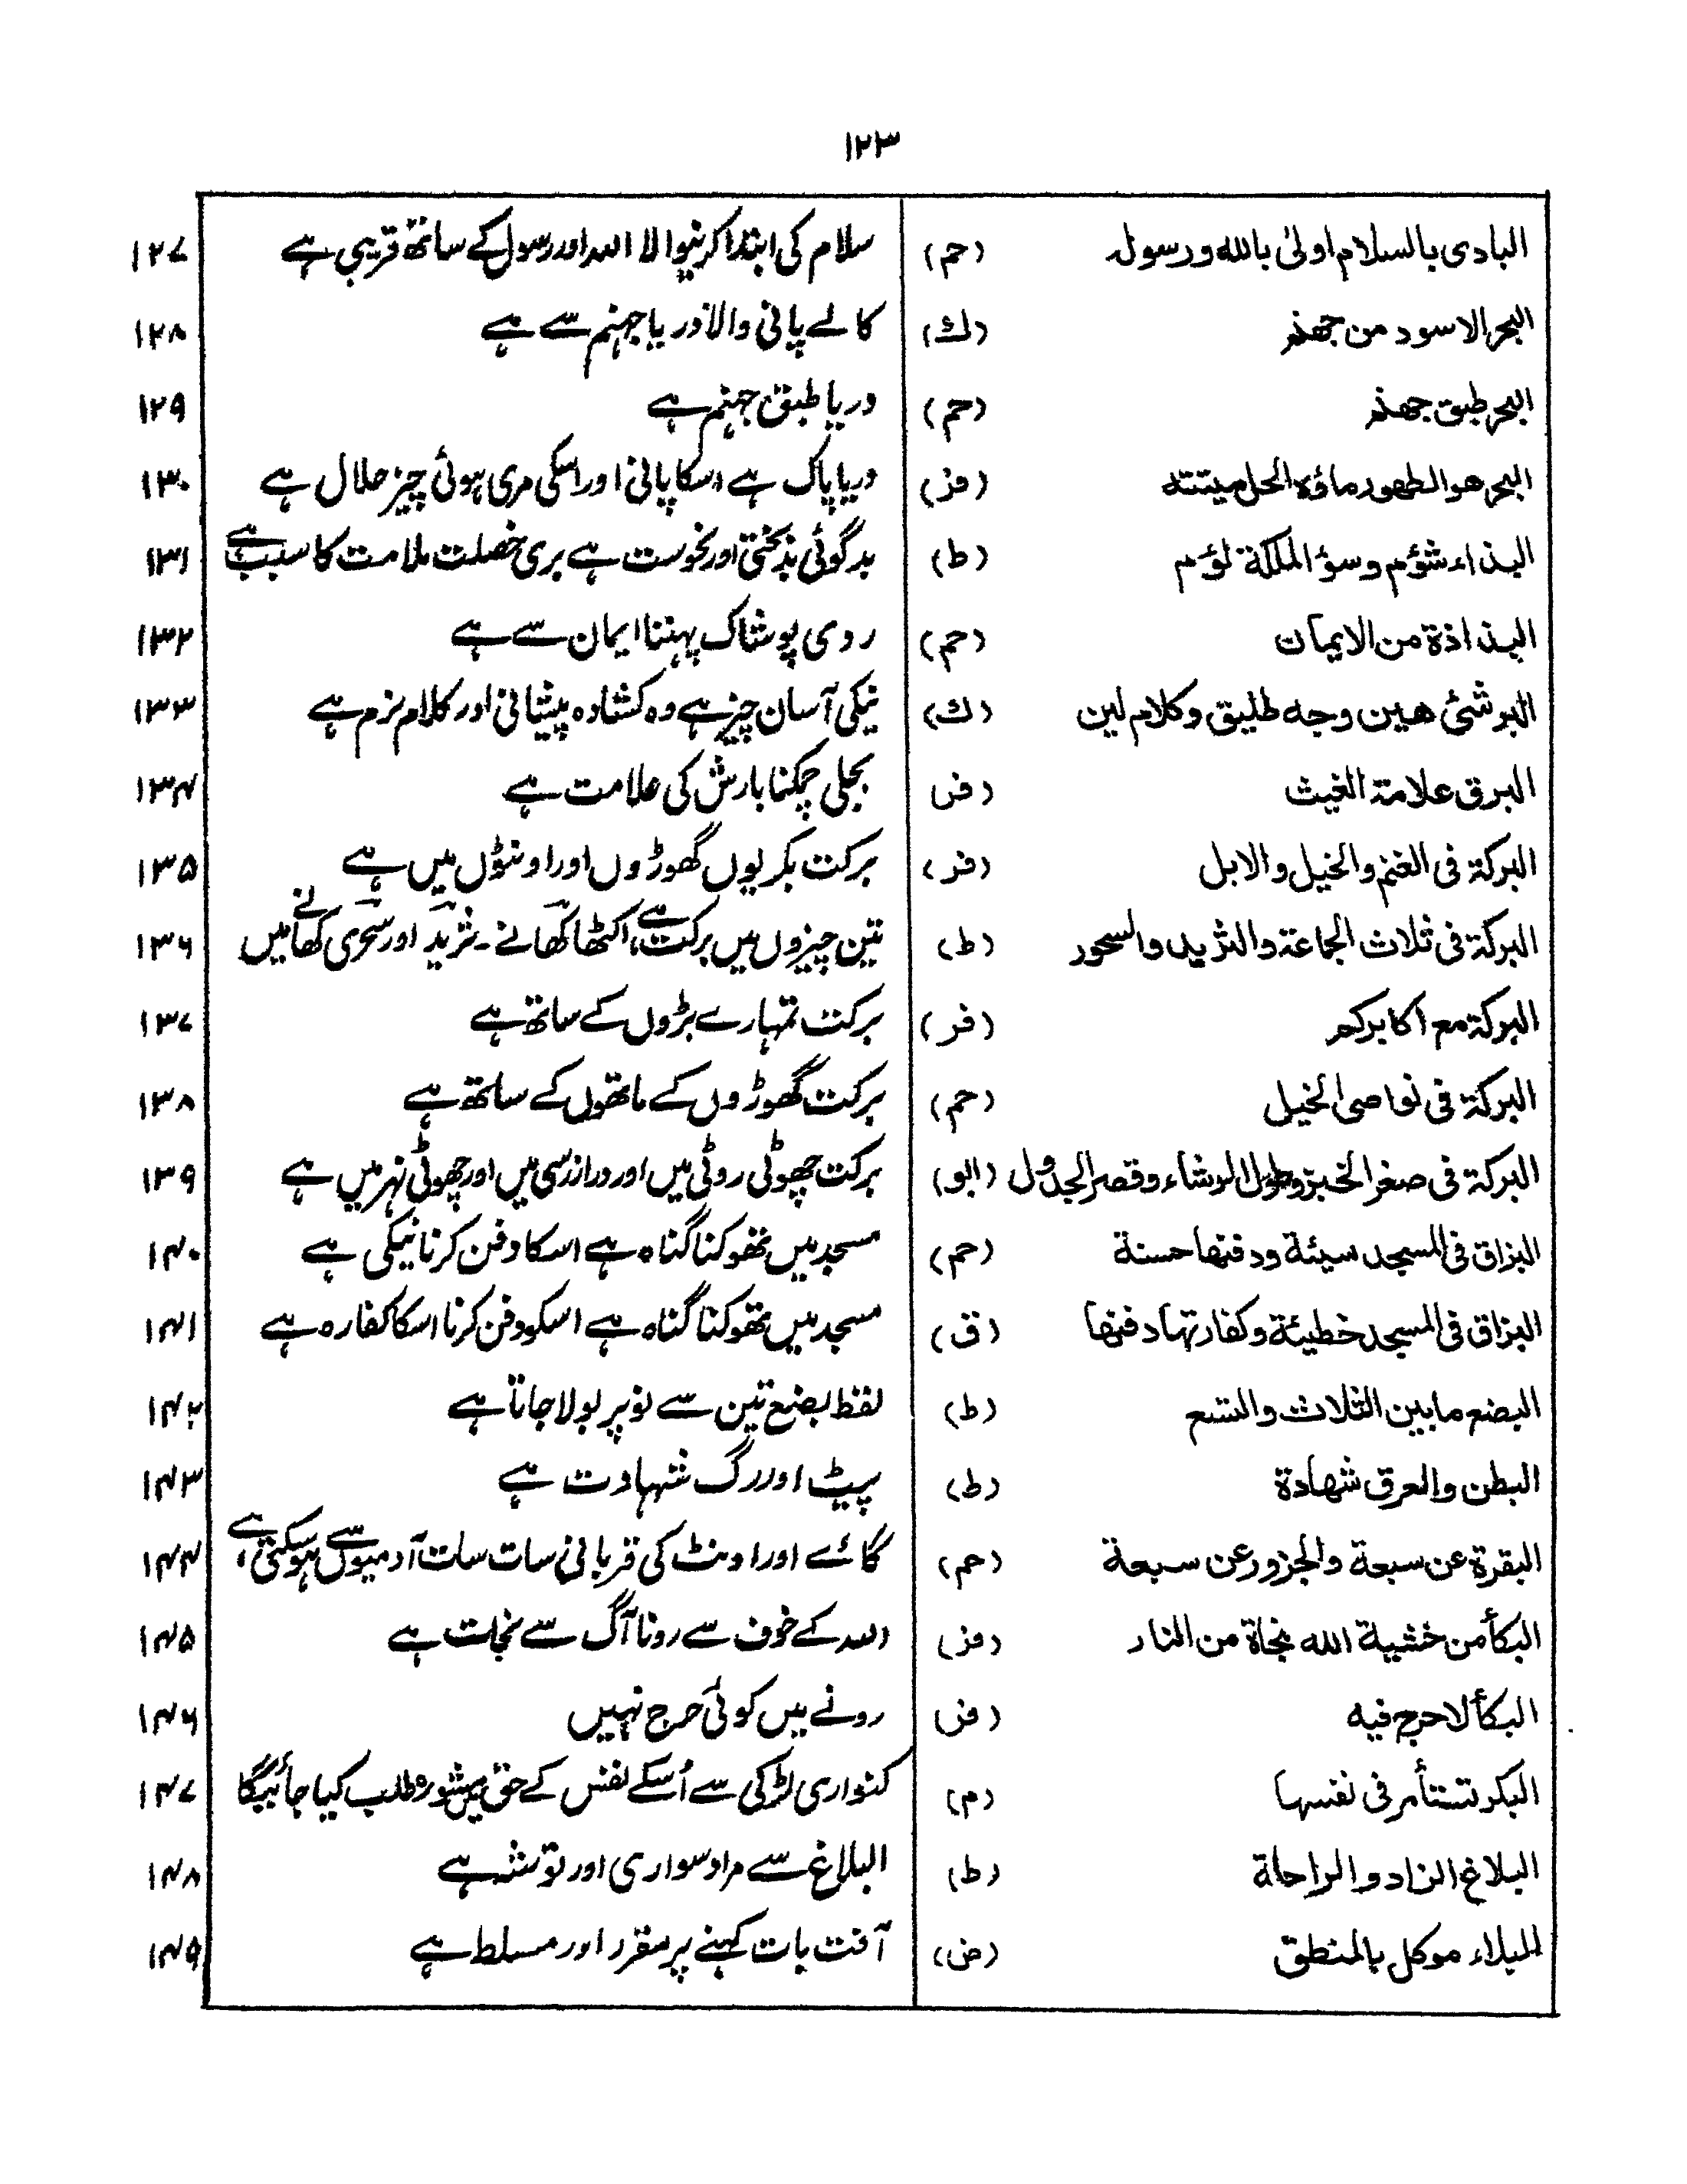 ۱۲۳
البادی بالسلام اولیٰ بالله ورسوله (حم) سلام کی ابتدا کرنیوالا اللہ اور رسول کے ساتھ قریبی ہے ۱۲۷
البحر الاسود من جهنم (ك) کالے پانی والا دریا جہنم سے ہے ۱۲۸
البحر طبق جهنم (حم) دریا طبق جہنم ہے ۱۲۹
البحر هو الطهور ماؤه الحل میتته (فر) دریا پاک ہے اسکا پانی اور اسکی مری ہوئی چیز حلال ہے ۱۳۰
البذاء شؤم وسؤ الملكة لؤم (ط) بد گوئی بدبختی اور نحوست ہے بری خصلت ملامت کا سبب ہے ۱۳۱
البذاذة من الایمان (حم) ردی پوشاک پہننا ایمان سے ہے ۱۳۲
البر شئ هین وجه طلیق وکلام لین (ك) نیکی آسان چیز ہے وہ کشادہ پیشانی اور کلام نرم ہے ۱۳۳
البرق علامة الغیث (فر) بجلی چمکنا بارش کی علامت ہے ۱۳۴
البركة فی الغنم والخیل والابل (فر) برکت بکریوں گھوڑوں اور اونٹوں میں ہے ۱۳۵
البركة فی ثلاث الجماعة والثرید والسحور (ط) تین چیزوں میں برکت ہے، اکٹھا کھانے۔ ثرید اور سحری کھانے میں ۱۳۶
البركة مع اکابرکم (فر) برکت تمہارے بڑوں کے ساتھ ہے ۱۳۷
البركة فی نواصی الخیل (حم) برکت گھوڑوں کے ماتھوں کے ساتھ ہے ۱۳۸
البركة فی صغر الخبز وطول الرشاء وقصر الجدول (ابو) برکت چھوٹی روٹی میں اور دراز رسی میں اور چھوٹی نہر میں ہے ۱۳۹
البزاق فی المسجد سیئة ودفنها حسنة (حم) مسجد میں تھوکنا گناہ ہے اسکا دفن کرنا نیکی ہے ۱۴۰
البزاق فی المسجد خطیئة وکفارتها دفنها (ق) مسجد میں تھوکنا گناہ ہے اسکو دفن کرنا اسکا کفارہ ہے ۱۴۱
البضع مابین الثلاث والتسع (ط) لفظ بضع تین سے نو پر بولا جاتا ہے ۱۴۲
البطن والغرق شهادة (ط) پیٹ اور رگ شہادت ہے ۱۴۳
البقرة عن سبعة والجزور عن سبعة (حم) گائے اور اونٹ کی قربانی سات سات آدمیوں سے ہو سکتی ہے، ۱۴۴
البکأ من خشیة الله نجاة من النار (فر) اللہ کے خوف سے رونا آگ سے نجات ہے ۱۴۵
البکأ لا حرج فیه (فر) رونے میں کوئی حرج نہیں ۱۴۶
البکر تستأمر فی نفسها (م) کنواری لڑکی سے اُسکے نفس کے حق میں مشورہ طلب کیا جائیگا ۱۴۷
البلاغ الزاد والراحلة (ط) البلاغ سے مراد سواری اور توشہ ہے ۱۴۸
البلاء موکل بالمنطق (ض) آفت بات کہنے پر مقرر اور مسلط ہے ۱۴۹